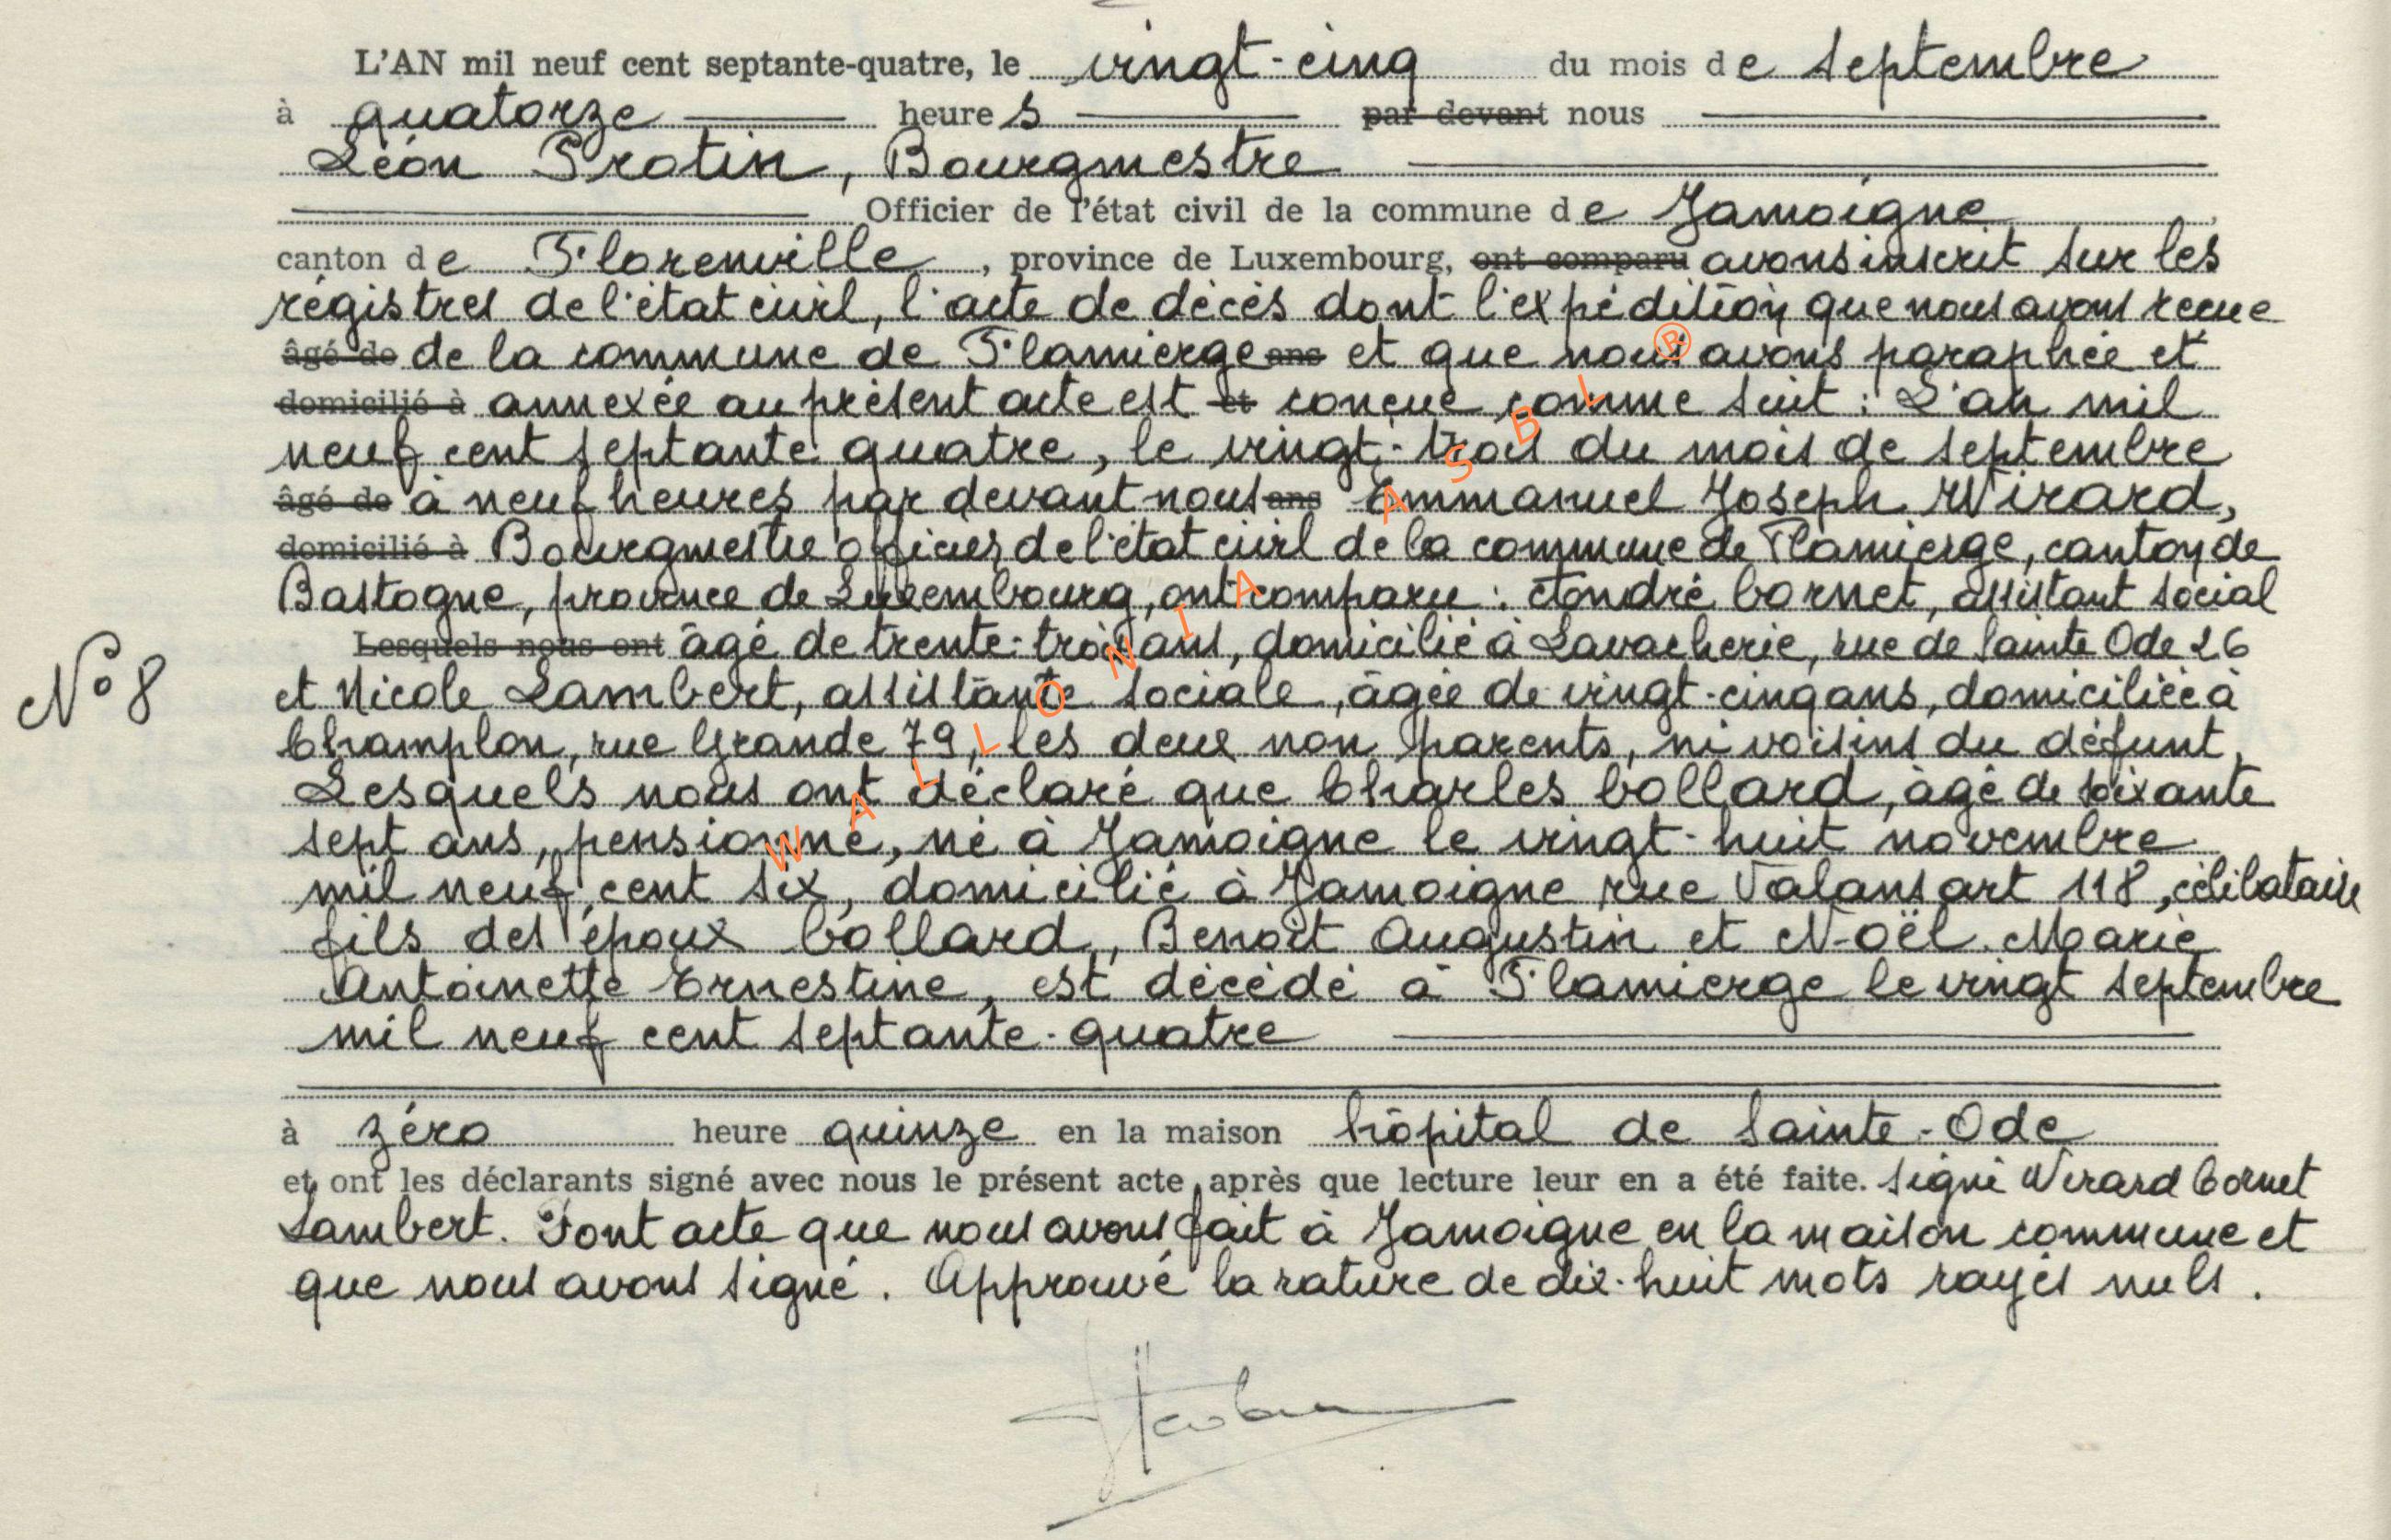 L'AN mil neuf cent septante-quatre, le vingt-cinq du mois de septembre
à quatorze heures par devant nous
Léon Protin, Bourgmestre
Officier de l'état civil de la commune de Jamoigne
canton de Florenville, province de Luxembourg, ont comparu avons inscrit sur les
régistres de l'état civil, l'acte de décès dont l'expédition que nous avons recue
âgé de de la commune de Flamierge ans et que nous avons paraphée et
domicilié à annexée au présent acte est et concue comme suit : L'an mil
neuf cent septante quatre, le vingt-trois du mois de septembre
âgé de à neuf heures par devant nous ans Emmanuel Joseph Wirard,
domicilié à Bourgmestre officier de l'état civil de la commune de Flamierge, canton de
Bastogne, province de Luxembourg, ont comparu : André Cornet, assistant social
Lesquels nous ont âgé de trente-trois ans, domicilié à Lavacherie, rue de Sainte Ode 26
N° 8
et Nicole Lambert, assistante sociale, âgée de vingt-cinq ans, domiciliée à
Champlon, rue Grande 79, les deux non parents, ni voisins du défunt,
Lesquels nous ont déclaré que Charles Collard, âgé de soixante
sept ans, pensionné, né à Jamoigne le vingt-huit novembre
mil neuf cent six, domicilié à Jamoigne rue Valansart 118, célibataire
fils des époux Collard, Benoît Augustin et Noël Marie
Antoinette Ernestine, est décédé à Flamierge le vingt septembre
mil neuf cent septante-quatre
à zéro heure quinze en la maison hôpital de Sainte-Ode
et ont les déclarants signé avec nous le présent acte après que lecture leur en a été faite. signé Wirard Cornet
Lambert. Dont acte que nous avons fait à Jamoigne en la maison commune et
que nous avons signé. Approuvé la rature de dix-huit mots rayés nuls.
WALLONIA ASBL ®